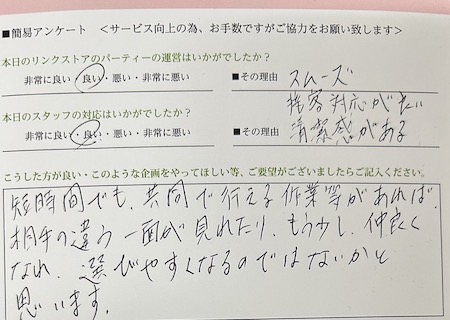 ■簡易アンケート <サービス向上の為、お手数ですがご協力をお願い致します>
本日のリンクストアのパーティーの運営はいかがでしたか?
非常に良い・良い・悪い・非常に悪い ■その理由 スムーズ
本日のスタッフの対応はいかがでしたか? 接客対応が良い
非常に良い・良い・悪い・非常に悪い ■その理由 清潔感がある
こうした方が良い・このような企画をやってほしい等、ご要望がございましたらご記入ください。
短時間でも、共同で行える作業等があれば、
相手の違う一面が見れたり、もう少し、仲良く
なれ、選びやすくなるのではないかと
思います。